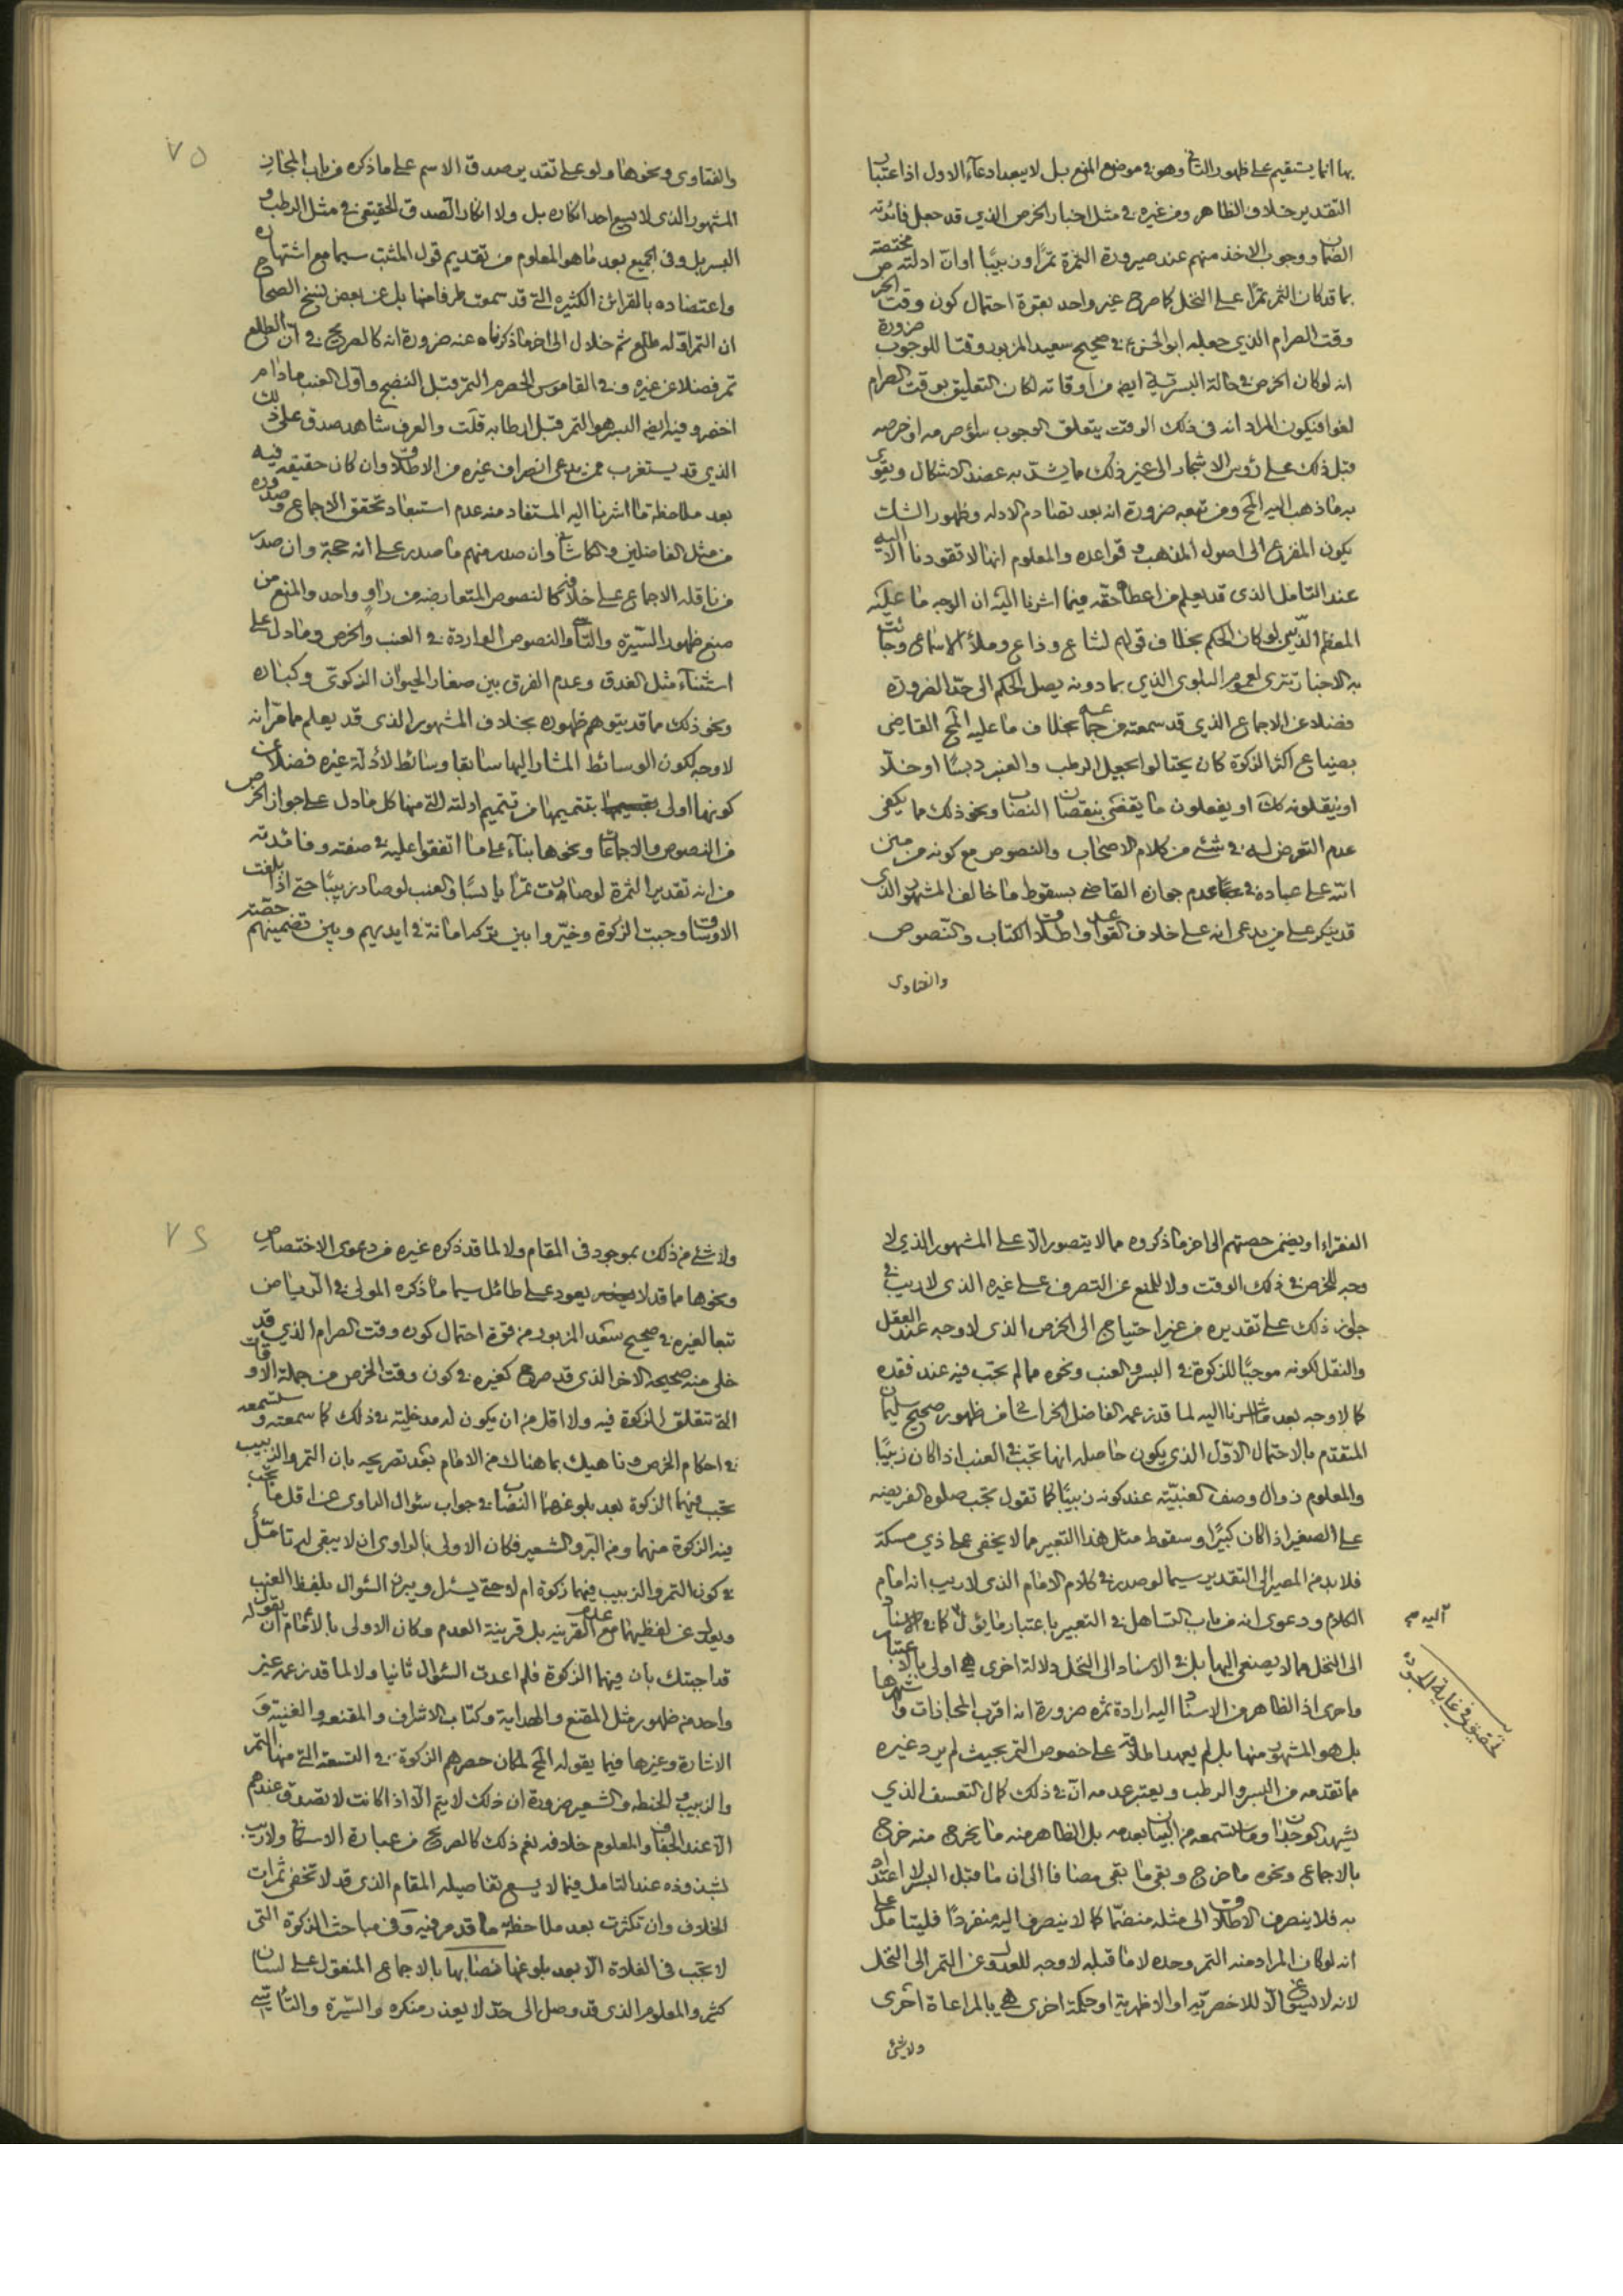 بها انما يستقيم على ظهور التا وهو في موضع المنع بل لا يبعد ادعاء الاول اذ اعتبار
التقدير خلاف الظاهر ومن غيره في مثل اخبار الخرص الذي قد جعل فائدته
الضمان ووجوب الاخذ منهم عند صيرورة الثمرة تمرًا وزبيبًا اوان ادلته مختصة
بما قد كان الثمر تمرًا على النخل كما صرح غير واحد بقوة احتمال كون وقت الخرص
وقت الصرام الذي جعله ابو الحسن ع في صحيح سعيد المزبور وقتا للوجوب ضرورة
انه لو كان الخرص في حالة البسرية ايضا من اوقاته لكان التعليق بوقت الصرام
لغوا فيكون المراد انه في ذلك الوقت يتعلق الوجوب سواء صرمه او خرصه
قبل ذلك على رؤس الاشجار الى غير ذلك مما يشد به عضد الاشكال ويقوى
به ما ذهب اليه المحقق ومن تبعه ضرورة انه بعد تصادم الادله وظهور الشك
يكون المفزع الى اصول المذهب وقواعده والمعلوم انها لا تقودنا الا اليه
عند التامل الذي قد يعلم من اعطاه حقه فيما اشرنا اليه ان الوجه ما عليه
المعظم الذين لو كان الحكم بخلاف قولهم لشاع وذاع وملأ الاسماع وجائت
به الاخبار تترى لعموم البلوى الذي بما دونه يصل الحكم الى حد الضرورة
فضلا عن الاجماع الذي قد سمعته من جماعة بخلاف ما عليه المحقق القاضي
بضياع اكثر الزكوة كان يحتالوا بجعل الرطب والعنب دبسًا او خلًا
او ينقلونه كك او يفعلون ما يقضي بنقصان النصاب ونحو ذلك مما يكفى
عدم التعرض له في شئ من كلام الاصحاب والنصوص مع كونه من
انه على عباده في عدم جوازه القاضي بسقوط ما خالف المشهور الذي
قد ينكر على من يدعى انه على خلاف القواعد واطلاق الكتاب والنصوص
والفتاوى
والفتاوى ونحوها ولو على تقدير صدق الاسم على ما ذكره من باب المجاز
المشهور الذي لا يسع احد انكاره بل ولا انكار الصدق الحقيقي في مثل الرطب و
البسر بل وفي الجميع بعد ما هو المعلوم من تقديم قول المثبت سيما مع اشتهاره
واعتضاده بالقرائن الكثيره التي قد سمعت طرفا منها بل عن بعض نسخ الصحاح
ان التمر اوله طلع ثم خلال الى اخر ما ذكرناه عنه ضرورة انه كالصريح في ان الطلع
تمر فضلا عن غيره وفي القاموس الحصرم التمر قبل النضج واول العنب مادام
اخضر وفيه ايضا البسر هو التمر قبل ارطابه قلت والعرف شاهد صدق على ذلك
الذي قد يستغرب ممن يدعى انصراف غيره من الاطلاق وان كان حقيقة فيه
بعد ملاحظة ما اشرنا اليه المستفاد منه عدم استبعاد تحقق الاجماع وصدوره
من مثل الفاضلين والكاشاني وان صدر منهم ما صدر على انه حجة وان صدر
من ناقله الاجماع على خلافه كالنصوص المتعارضه من راوٍ واحد والمنع من
منع ظهور السيرة والتأ والنصوص الواردة في العنب والخرص وما دل على
استثناء مثل الغدق وعدم الفرق بين صغار الحيوان الزكوي وكباره
ونحو ذلك مما قد يتوهم ظهوره بخلاف المشهور الذي قد يعلم مما مر انه
لا وجه لكون الوسائط المشار اليها سابقا وسائط لأدلة غيره فضلا عن
كونها اولى بتتميمها من تتميم ادلته التي منها كل ما دل على جواز الخرص
من النصوص والاجماعات ونحوها بناء على ما اتفقوا عليه في صفته وفائدته
من انه تقدير الثمرة لو صارت تمرًا يابسًا والعنب لو صار زبيبًا حتى اذا بلغت
الاوساق وجبت الزكوة وخيروا بين تركها امانة في ايديهم وبين تضمينهم حصة
الفقراء او يضمن حصتهم الى اخر ما ذكروه مما لا يتصور الا على المشهور الذي لا
وجه للخرص في ذلك الوقت ولا للمنع عن التصرف على غيره الذي لا ريب في
جواز ذلك على تقديره من غير احتياج الى الخرص الذي لا وجه عند العقل
والنقل لكونه موجبًا للزكوة في البسر والعنب ونحوه مما لم تجب فيه عند فقده
كما لا وجه بعد ما اشرنا اليه لما قد زعمه الفاضل الخراساني من ظهور صحيح سليمان
المتقدم بالاحتمال الاول الذي يكون حاصله انها تجب في العنب اذا كان زبيبًا
والمعلوم زوال وصف العنبية عند كونه زبيبًا كما تقول تجب صلوة الفريضه
على الصغير اذا كان كبيرًا وسقوط مثل هذا التعبير مما لا يخفى على ذي مسكة
فلا بد من المصير الى التقدير سيما لو صدر في كلام الامام الذي لا ريب انه امام
الكلام ودعوى انه من باب التساهل في التعبير باعتبار ما يؤل اليه كما في الاسناد
الى النخل مما لا يصغى اليها بل في الاسناد الى النخل دلالة اخرى هي اولى بالاعتبار
واحرى اذ الظاهر من الاسناد اليه ارادة ثمره ضرورة انه اقرب المجازات واشهرها
بل هو المشهور منها بل لم يعهد اطلاقه على خصوص التمر بحيث لم يرد غيره
ما تقدمه من البسر والرطب ويعتبر عدمه ان في ذلك كمال التعسف الذي
يشهد الوجدان وما ستسمعه من البيان بعدمه بل الظاهر منه ما يخرج منه خرج
بالاجماع ونحوه ما خرج وبقي ما بقى مضافا الى ان ما قبل البسر لا اعتداد
به فلا ينصرف الاطلاق الى مثله منضمًا كما لا ينصرف اليه منفردًا فليتامل على
انه لو كان المراد منه التمر وحده لا ما قبله لا وجه للعدول عن التمر الى النخل
لانه لا يسوغ الا للاخصرية او الاظهرية او حكمة اخرى هي بالمراعاة احرى
ولا شئ
آليه م
تحقيق في غاية الجودة
ولا شئ من ذلك بموجود في المقام ولا لما قد ذكره غيره من دعوى الاختصاص
ونحوها مما قد لا يعود على طائل سيما ما ذكره المولى في الرياض
تبعا لغيره في صحيح سعد المزبور من قوة احتمال كون وقت الصرام الذي قد
خلى منه صحيحه الاخر الذي قد صرح كغيره في كون وقت الخرص من جملة الاوقات
التي تتعلق الزكوة فيه ولا اقل من ان يكون له مدخلية في ذلك كما سمعته وستسمعه
في احكام الخرص وناهيك بما هناك من الامام بعد تصريحه بان التمر والزبيب
تجب فيهما الزكوة بعد بلوغهما النصاب في جواب سئوال الراوى عن اقل ما تجب
فيه الزكوة منهما ومن البر والشعير فكان الاولى بالراوى ان لا يبقى له تامل
في كون التمر والزبيب فيهما زكوة ام لا حتى يسئل ويبرز السئوال بلفظ العنب
ويعدل عن لفظيهما مع عدم القرينه بل قرينة العدم وكان الاولى بالامام ان يقول له
قد اجبتك بان فيهما الزكوة فلم اعدت السئوال ثانيا ولا لما قد زعمه غير
واحد من ظهور مثل المقنع والهداية وكتاب الاشراف والمقنعه والغنية و
الاشارة وغيرها فيما يقوله المحقق لمكان حصرهم الزكوة في التسعة التي منها التمر
والزبيب والحنطه والشعير ضرورة ان ذلك لا يتم الا اذا كانت لا تصدق عندهم
الا عند الجفاف والمعلوم خلافه نعم ذلك كالصريح من عبارة الاسكافي ولا ريب
بشذوذه عند التامل فيما لا يسع تفاصيله المقام الذي قد لا تخفى ثمرات
الخلاف وان تكثرت بعد ملاحظة ما قد مر فيه وفي مباحث الزكوة التي
لا تجب في الغلاة الا بعد بلوغها نصابها بالاجماع المنقول على لسان
كثير والمعلوم الذي قد وصل الى حد لا يعذر منكره والسيرة والتأسي